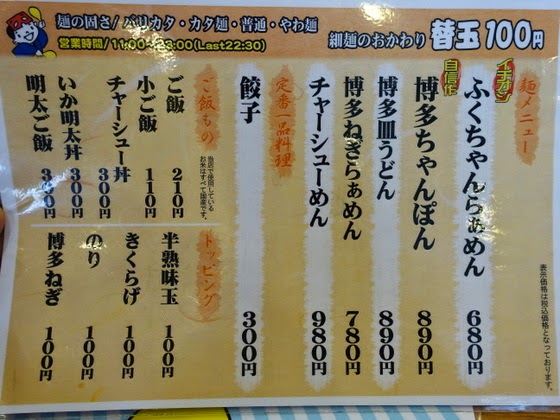 麺の固さ/バリカタ・カタ麺・普通・やわ麺
営業時間/11:00〜23:00(Last22:30)
細麺のおかわり 替玉100円
麺メニュー
イチオシ
ふくちゃんらぁめん 680円
自信作
博多ちゃんぽん 890円
博多皿うどん 890円
博多ねぎらぁめん 780円
チャーシューめん 980円
表示価格は税込価格となっております。
定番一品料理
餃子 300円
ご飯もの
当店で使用している
お米はすべて国産です。
ご飯 210円
小ご飯 110円
チャーシュー丼 300円
いか明太丼 300円
明太ご飯
トッピング
半熟味玉 100円
きくらげ 100円
のり 100円
博多ねぎ 100円